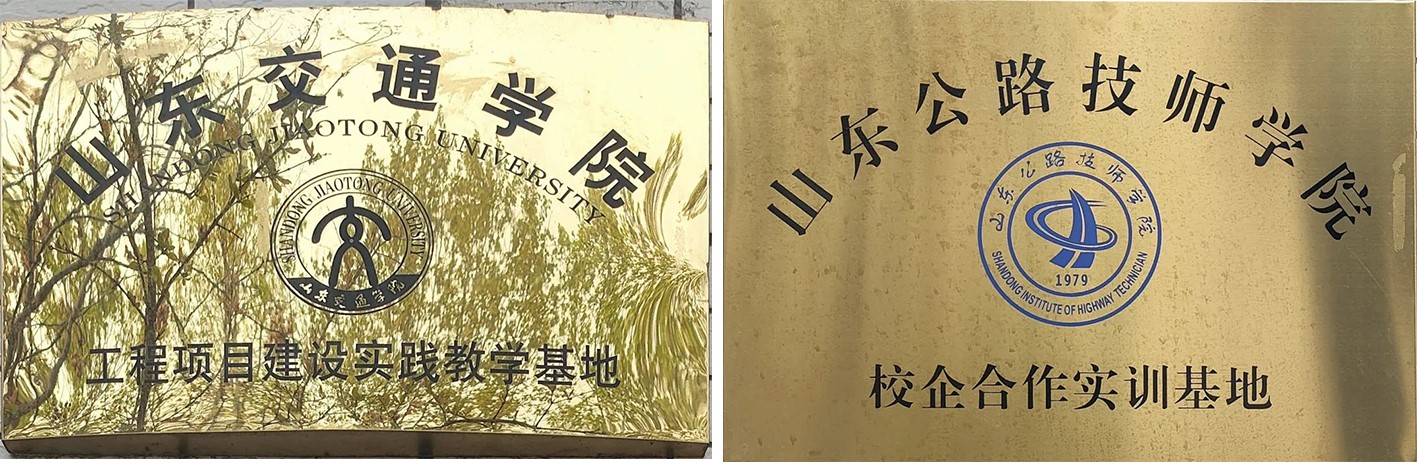 山东交通学院
SHANDONG JIAOTONG UNIVERSITY
SHANDONG JIAOTONG UNIVERSITY
山东交通学院
工程项目建设实践教学基地
山东公路技师学院
山东公路技师学院
1979
SHANDONG INSTITUTE OF HIGHWAY TECHNICIAN
校企合作实训基地